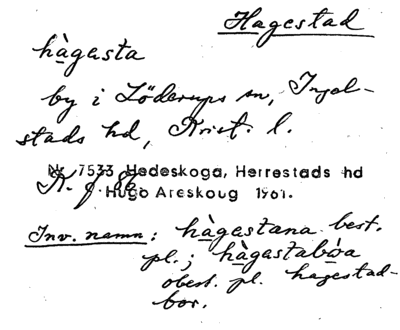 Hagestad
hàgasta
by i Löderups sn, Ingel-
stads hd, Krist. l.
Nr 7533 Hedeskoga, Herrestads hd
Hugo Areskoug 1961.
Inv. namn: hàgastana best.
pl.; hàgastabòa
obest. pl. hagestad-
bor.